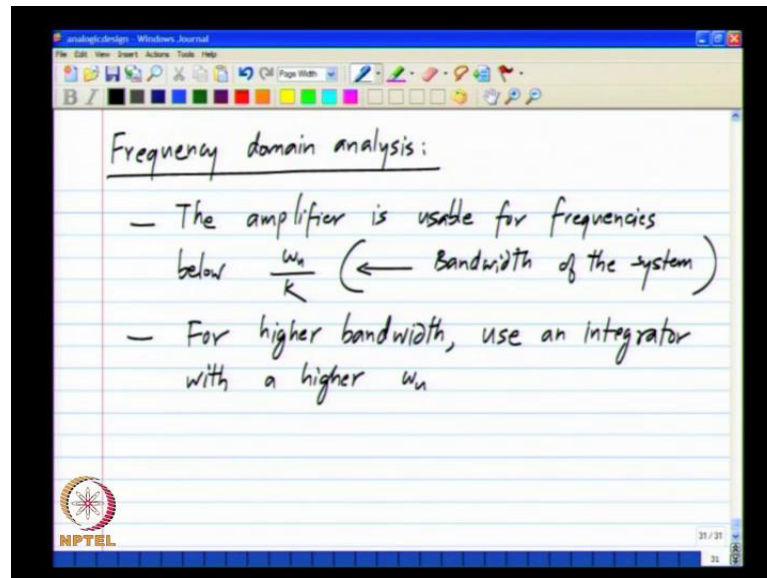 analogicdesign - Windows Journal
File Edit View Insert Actions Tools Help
Page Width
B I
Frequency domain analysis:
— The amplifier is usable for frequencies
below ωu/K (← Bandwidth of the system)
— For higher bandwidth, use an integrator
with a higher ωu
NPTEL
31 / 31
31